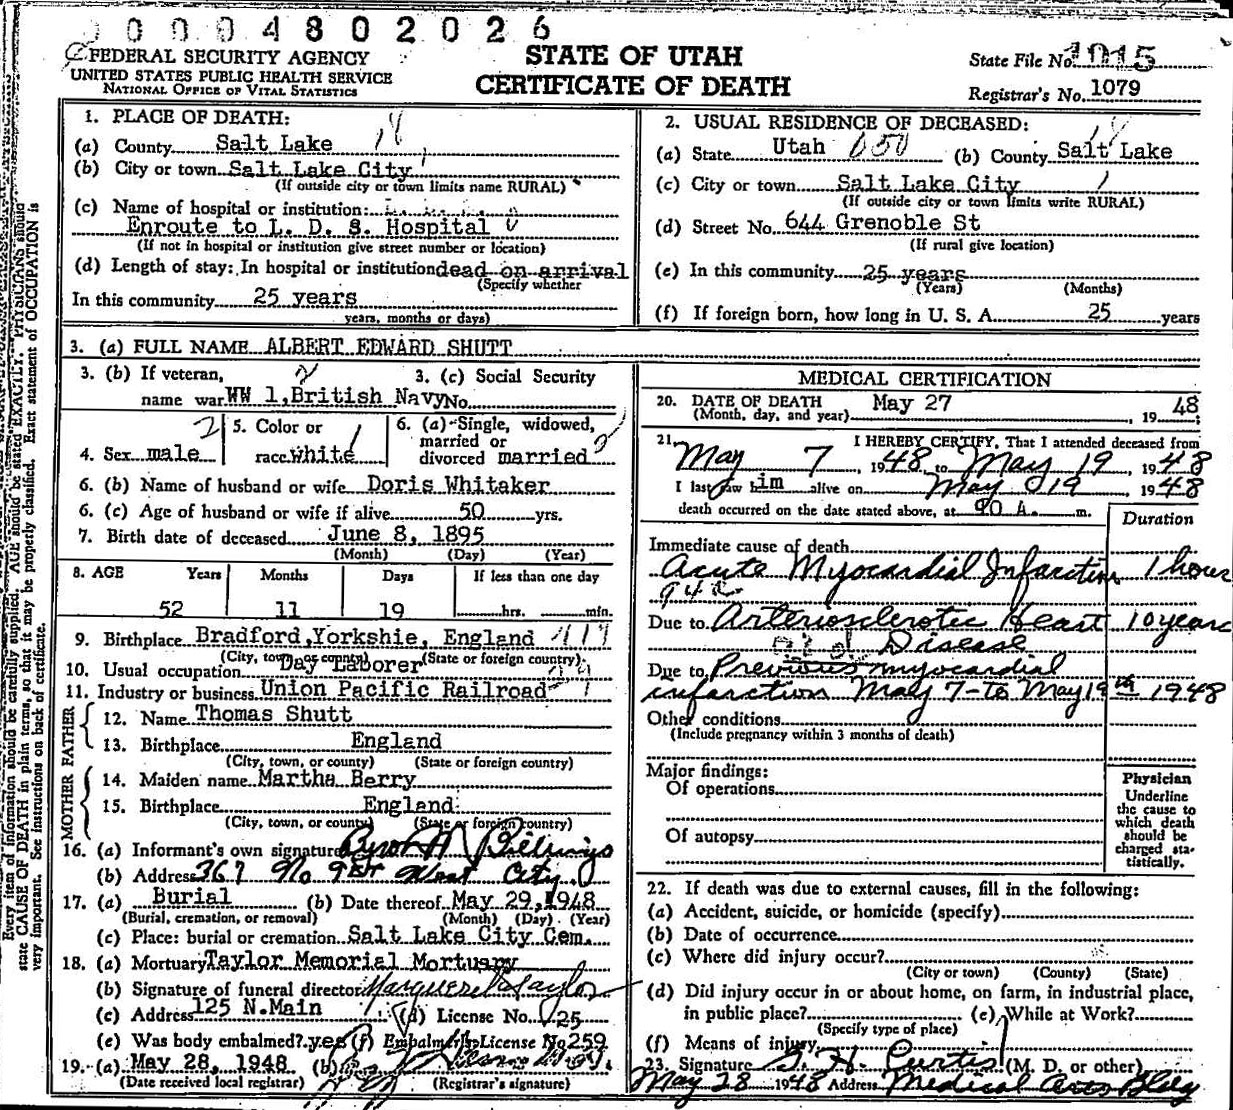 0 0 0 4 8 0 2 0 2 6
FEDERAL SECURITY AGENCY
UNITED STATES PUBLIC HEALTH SERVICE
NATIONAL OFFICE OF VITAL STATISTICS
STATE OF UTAH
CERTIFICATE OF DEATH
State File No. 1015
Registrar's No. 1079
1. PLACE OF DEATH: 18
(a) County Salt Lake
(b) City or town Salt Lake City
(If outside city or town limits name RURAL)
(c) Name of hospital or institution:
Enroute to L. D. S. Hospital
(If not in hospital or institution give street number or location)
(d) Length of stay: In hospital or institution dead on arrival
(Specify whether
In this community 25 years
years, months or days)
2. USUAL RESIDENCE OF DECEASED: 18
(a) State Utah 650 (b) County Salt Lake
(c) City or town Salt Lake City 1
(If outside city or town limits write RURAL)
(d) Street No. 644 Grenoble St
(If rural give location)
(e) In this community 25 years
(Years) (Months)
(f) If foreign born, how long in U. S. A. 25 years
3. (a) FULL NAME ALBERT EDWARD SHUTT
3. (b) If veteran, 2
name war WW 1, British Navy
3. (c) Social Security
No.
4. Sex male 2
5. Color or
race white 1
6. (a) Single, widowed,
married or
divorced married 2
6. (b) Name of husband or wife Doris Whitaker
6. (c) Age of husband or wife if alive 50 yrs.
7. Birth date of deceased June 8, 1895
(Month) (Day) (Year)
8. AGE Years Months Days If less than one day
52 11 19 hrs. min.
9. Birthplace Bradford, Yorkshie, England
(City, town, or county) (State or foreign country)
10. Usual occupation Day Laborer
11. Industry or business Union Pacific Railroad
FATHER
12. Name Thomas Shutt
13. Birthplace England
(City, town, or county) (State or foreign country)
MOTHER
14. Maiden name Martha Berry
15. Birthplace England
(City, town, or county) (State or foreign country)
16. (a) Informant's own signature Byron H Billings
(b) Address 367 No 9th West City
17. (a) Burial (b) Date thereof May 29, 1948
(Burial, cremation, or removal) (Month) (Day) (Year)
(c) Place: burial or cremation Salt Lake City Cem.
18. (a) Mortuary Taylor Memorial Mortuary
(b) Signature of funeral director Marguerite Taylor
(c) Address 125 N. Main (d) License No. 25
(e) Was body embalmed? yes (f) Embalmer's License No. 259
19. (a) May 28, 1948 (b)
(Date received local registrar) (Registrar's signature)
MEDICAL CERTIFICATION
20. DATE OF DEATH May 27, 1948;
(Month, day, and year)
21. I HEREBY CERTIFY, That I attended deceased from
May 7, 1948, to May 19, 1948
I last saw him alive on May 19, 1948
death occurred on the date stated above, at 90 A. m.
Duration
Immediate cause of death
Acute Myocardial Infarction 1 hour
94a
Due to Arteriosclerotic Heart 10 years
Disease
Due to Previous myocardial
infarction May 7-to May 19th 1948
Other conditions
(Include pregnancy within 3 months of death)
Major findings:
Of operations
Of autopsy
Physician
Underline
the cause to
which death
should be
charged sta-
tistically.
22. If death was due to external causes, fill in the following:
(a) Accident, suicide, or homicide (specify)
(b) Date of occurrence
(c) Where did injury occur?
(City or town) (County) (State)
(d) Did injury occur in or about home, on farm, in industrial place,
in public place? (e) While at Work?
(Specify type of place)
(f) Means of injury
23. Signature S. H. Curtis (M. D. or other)
May 28 1948 Address Medical Arts Bldg
Every item of information should be carefully supplied. AGE should be stated EXACTLY. PHYSICIANS should
state CAUSE OF DEATH in plain terms, so that it may be properly classified. Exact statement of OCCUPATION is
very important. See instructions on back of certificate.